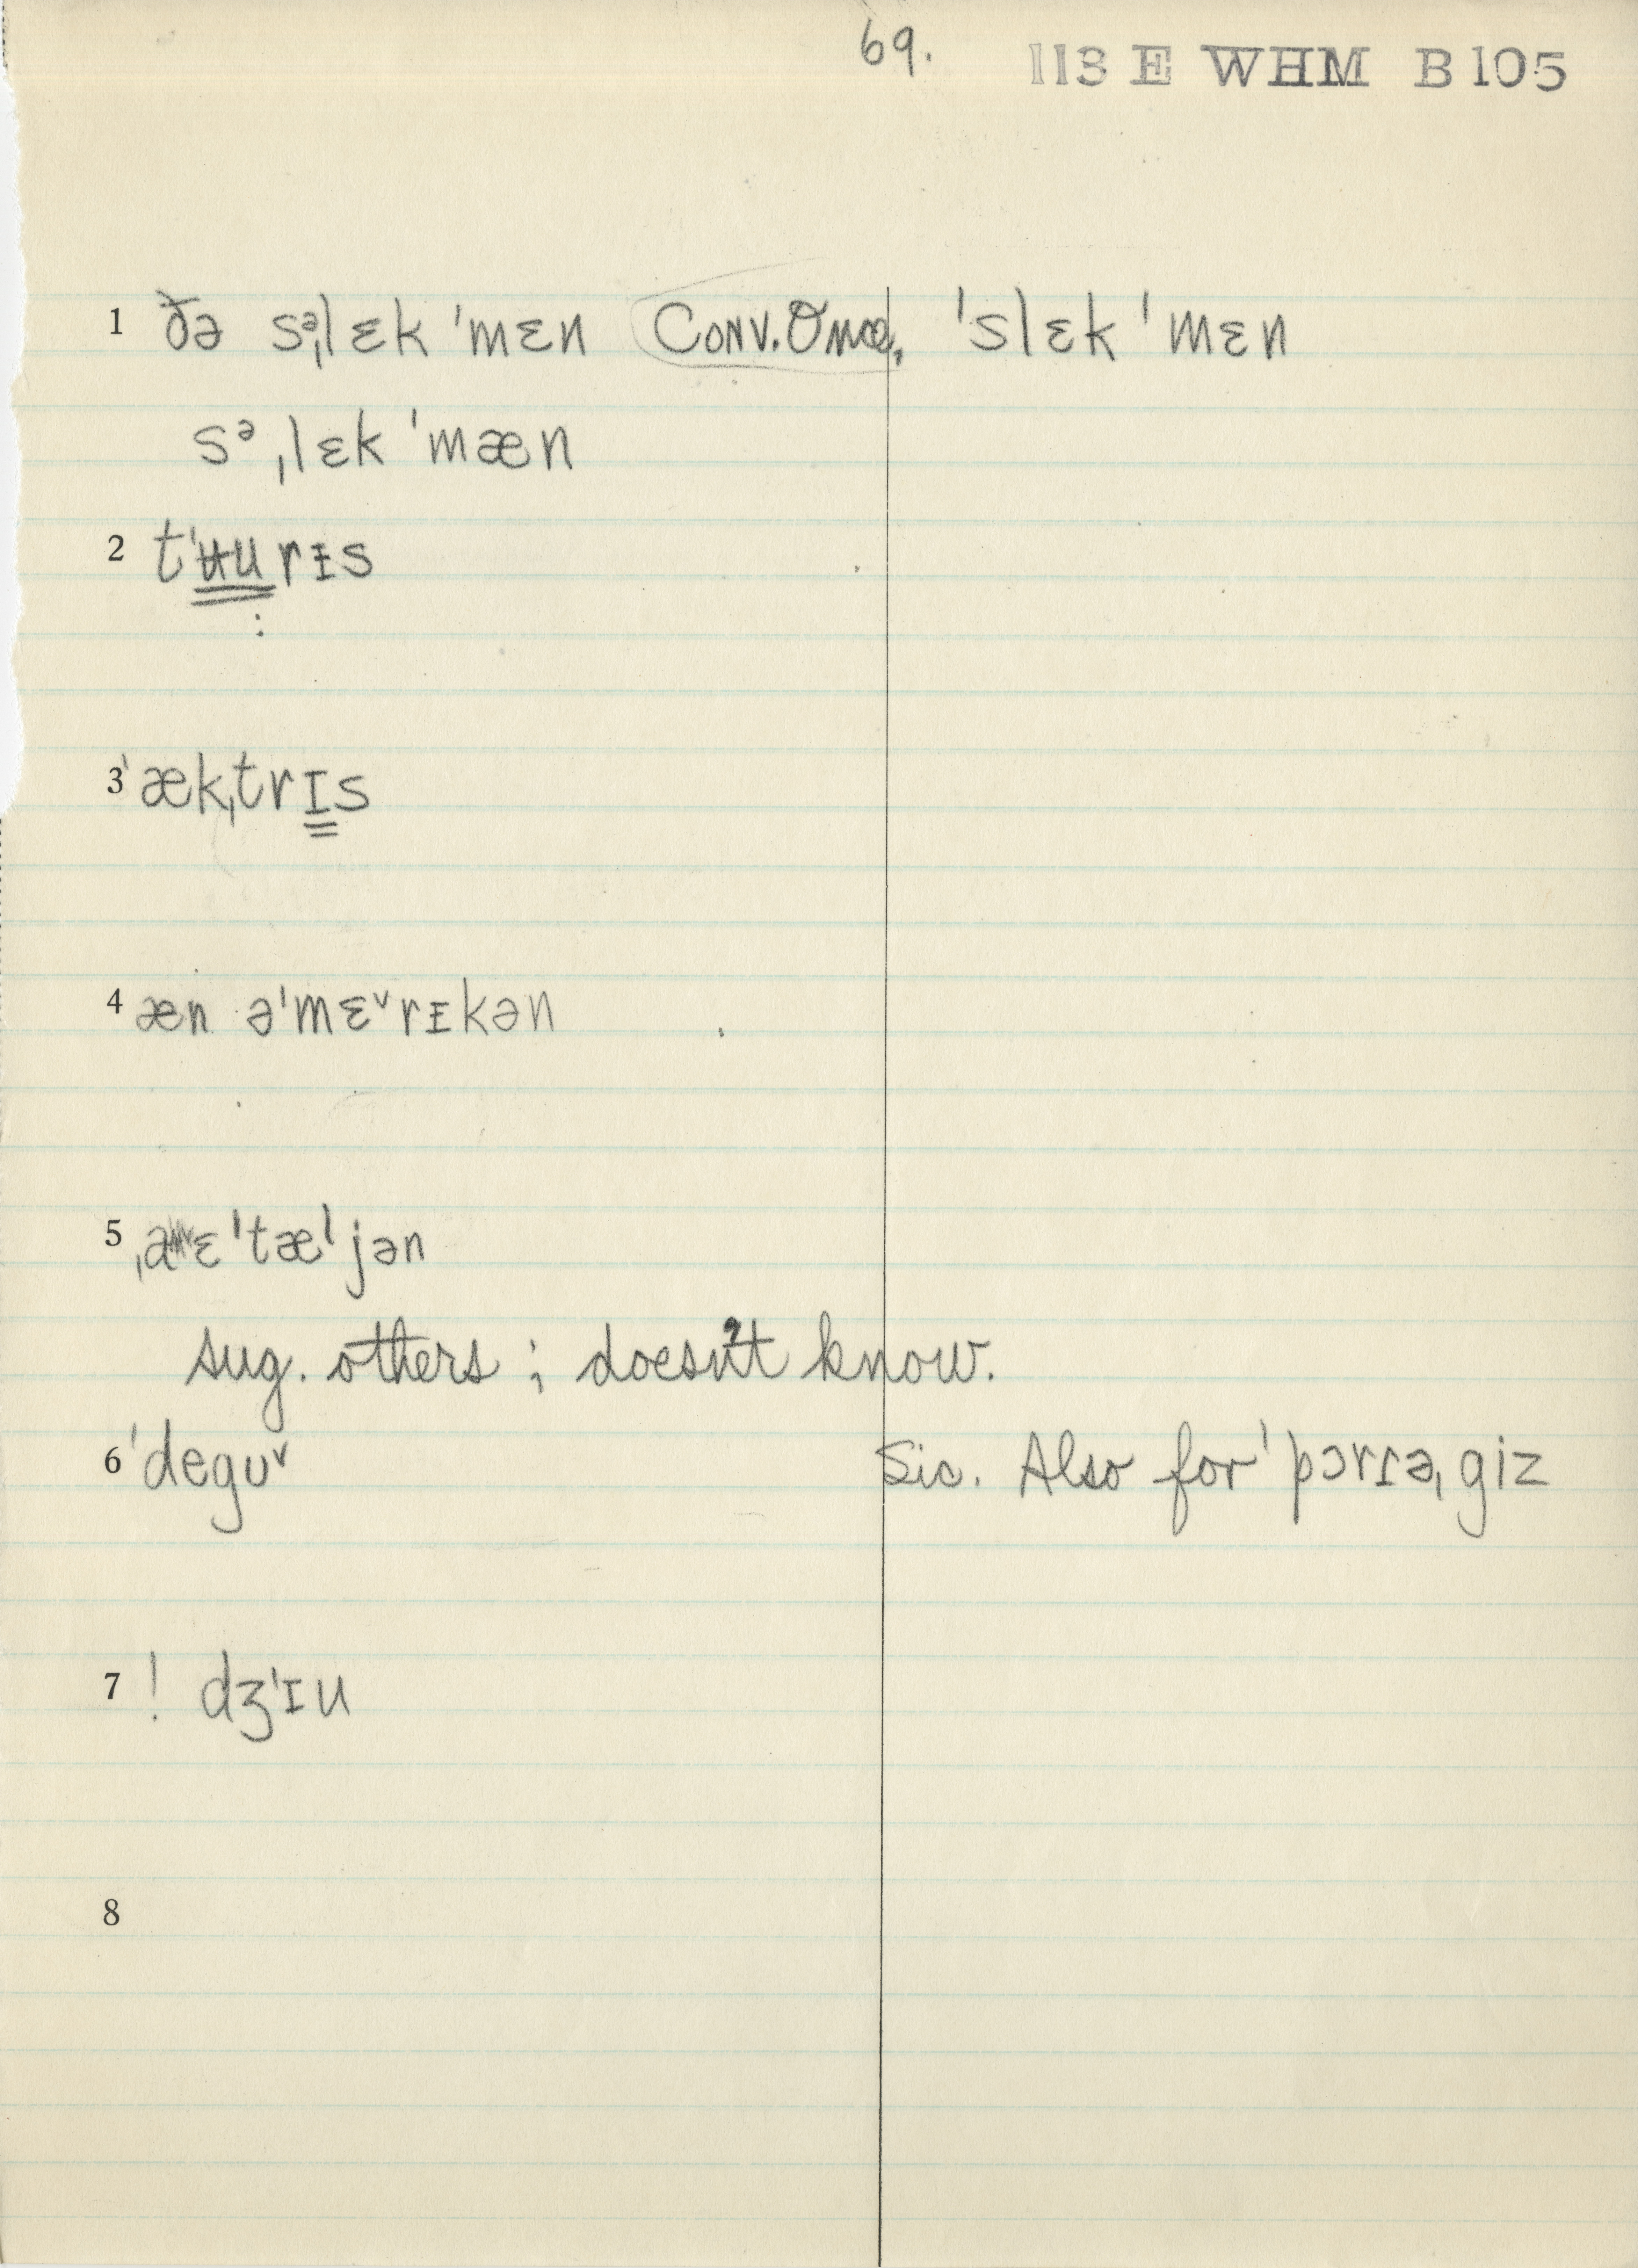 69. 113 E WHM B105
1 ðə sᵊˌlɛk ˈmɛn Conv. Once, ˈslɛk ˈmɛn
sᵊˌlɛk ˈmæn
2 tˈʉurɪs
:
3 ˈækˌtrɪs
4 æn əˈmɛ˅rɪkən
5 ˌaɛˈtæljən
sug. others; doesn't know.
6 ˈdegʊ˅ Sic. Also for ˈpɔrɪəˌgiz
7 ! dʒˈɪu
8